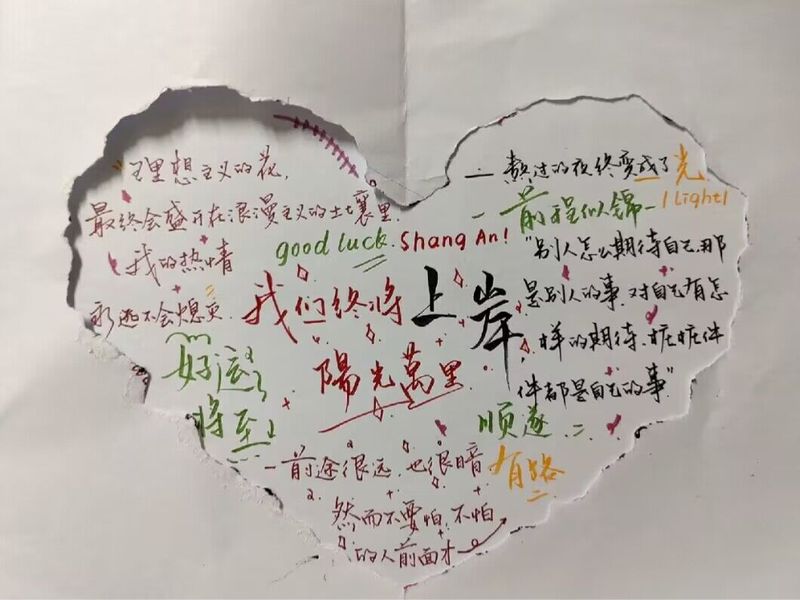 "理想主义的花,
最终会盛开在浪漫主义的土壤里.
我的热情
永远不会熄灭.
good luck. Shang An!
— 熬过的夜终变成了光
(Light)
- 前程似锦 -
"别人怎么期待自己,那
是别人的事.对自己有怎
样的期待,桩桩件
件都是自己的事"
我们终将上岸
陽光萬里
好运
将至!
顺遂
- 前途很远.也很暗
然而不要怕.不怕
的人前面才
有路